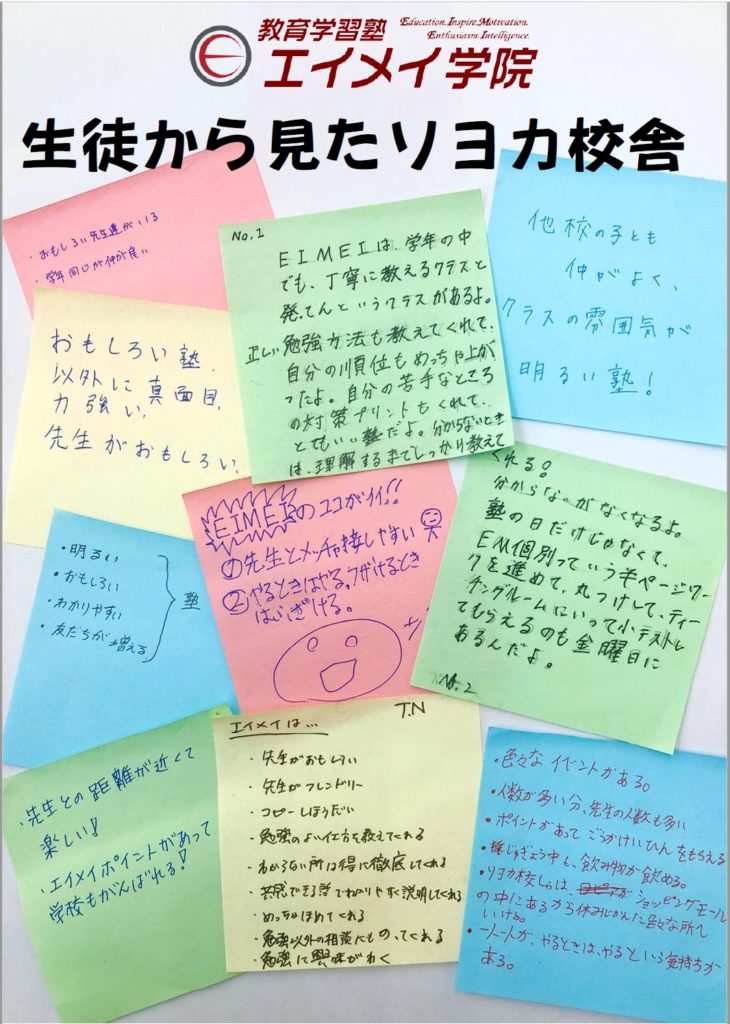 教育学習塾
Education.Inspire.Motivation.
Enthusiasm.Intelligence.
エイメイ学院
生徒から見たソヨカ校舎
・おもしろい先生達がいる
・学年同じが仲が良い
No.1
EIMEIは、学年の中
でも、丁寧に教えるクラスと
発てんというクラスがあるよ。
正しい勉強方法も教えてくれて、
自分の順位もめっちゃ上が
ったよ。自分の苦手なところ
の対策プリントもくれて、
とてもいい塾だよ。分からないとき
は、理解するまでしっかり教えて
他校の子とも
仲がよく、
クラスの雰囲気が
明るい塾!
おもしろい塾、
以外に真面目、
力強い、
先生がおもしろい、
EIMEIのココがイイ!!
①先生とメッチャ接しやすい
②やるときはやる。フザけるとき
はふざける。
くれる!
分からな〜がなくなるよ。
塾の日だけじゃなくて、
EM個別っていう半ページワー
クを進めて、丸つけして、ティー
チングルームにいって小テストし
てもらえるのも金曜日に
あるんだよ。
No.2
・明るい
・おもしろい
・わかりやすい
・友だちが増える
塾
T.N
エイメイは…
・先生がおもしろい
・先生がフレンドリー
・コピーしほうだい
・勉強のよい仕方を教えてくれる
・わからない所は得に徹底してくれる
・共感できる話でわかりやすく説明してくれる
・めっちゃほめてくれる
・勉強以外の相談にものってくれる
・勉強に興味がわく
・先生との距離が近くて
楽しい!
・エイメイポイントがあって
学校もがんばれる!
・色々なイベントがある。
・人数が多い分、先生の人数も多い
・ポイントがあってごうかけいひんをもらえる
・じゅぎょう中も、飲み物が飲める。
・ソヨカ校しゃは、ショッピングモール
の中にあるから休みじかんに色々な所へ
いける。
・一人一人が、やるときは、やるという気持ちが
ある。